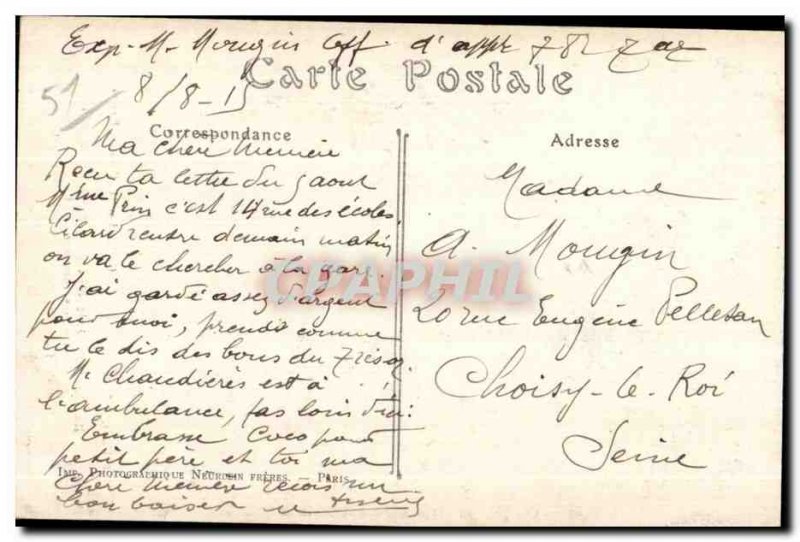 Exp. M. Mougin off. d'app
Carte Postale
51
8/8-15
Correspondance
Ma chère Mémère
Reçu ta lettre du 5 aout
Mme Prin c'est 14 rue des écoles.
rentre demain matin
on va le chercher à la gare.
J'ai gardé assez d'argent
pour moi, prends comme
tu le dis des bons du Trésor
M. Chaudières est à
l'ambulance, pas loin d'ici.
Embrasse Coco pour
petit père et toi ma
chère mémère reçois un
bon baiser
IMP. PHOTOGRAPHIQUE NEURDEIN FRÈRES. — PARIS
Adresse
Madame
A. Mougin
20 rue Eugène Pelletan
Choisy-le-Roi
Seine
CPAPHIL